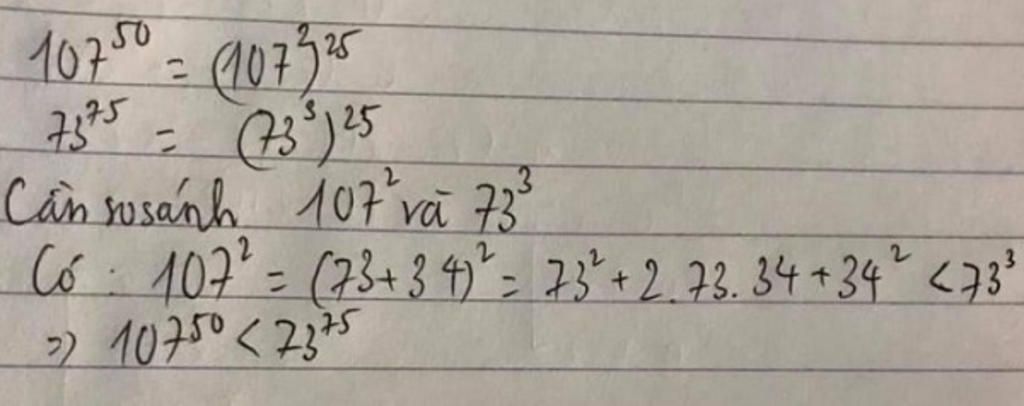 107⁵⁰ = (107²)²⁵
73⁷⁵ = (73³)²⁵
Cần so sánh 107² và 73³
Có : 107² = (73+34)² = 73² + 2.73.34 + 34² < 73³
=> 107⁵⁰ < 73⁷⁵